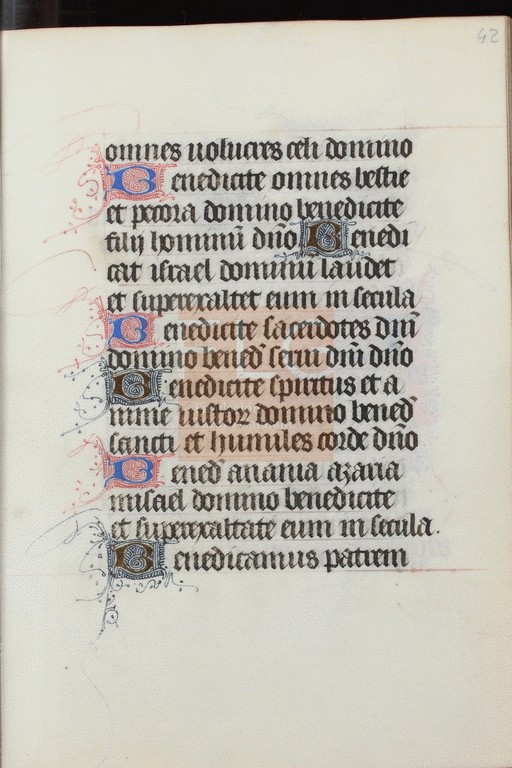 42
omnes uolucres celi domino
Benedicite omnes bestie
et pecora domino benedicite
filij hominū dño Benedi
cat israel dominū laudet
et superexaltet eum in secula
Benedicite sacerdotes dm̄
domino bened̄ serui dm̄ dño
Benedicite spiritus et a
nime iustoꝝ domino bened̄
sancti et humiles corde dño
Bened̄ anania azaria
misael domino benedicite
et superexaltate eum in secula.
Benedicamus patrem